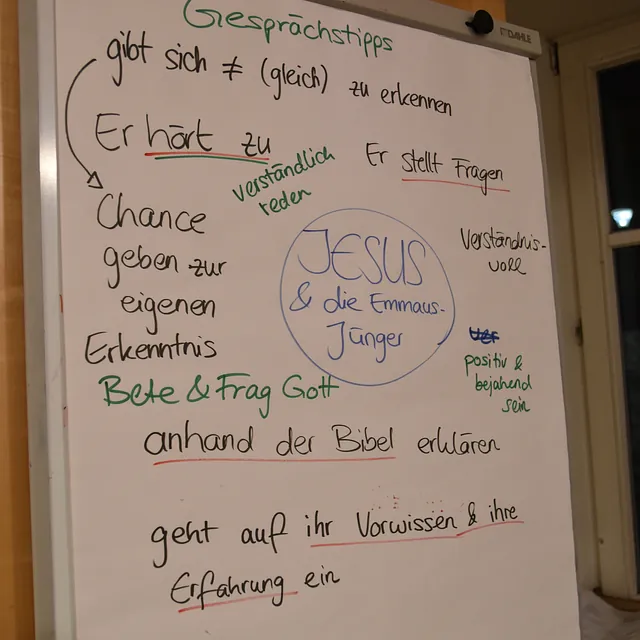 Gesprächstipps
DAHLE
gibt sich ≠ (gleich) zu erkennen
Er hört zu
verständlich
reden
Er stellt Fragen
Chance
geben zur
eigenen
Erkenntnis
JESUS
& die Emmaus-
Jünger
Verständnis-
voll
positiv &
bejahend
sein
Bete & Frag Gott
anhand der Bibel erklären
geht auf ihr Vorwissen & ihre
Erfahrung ein